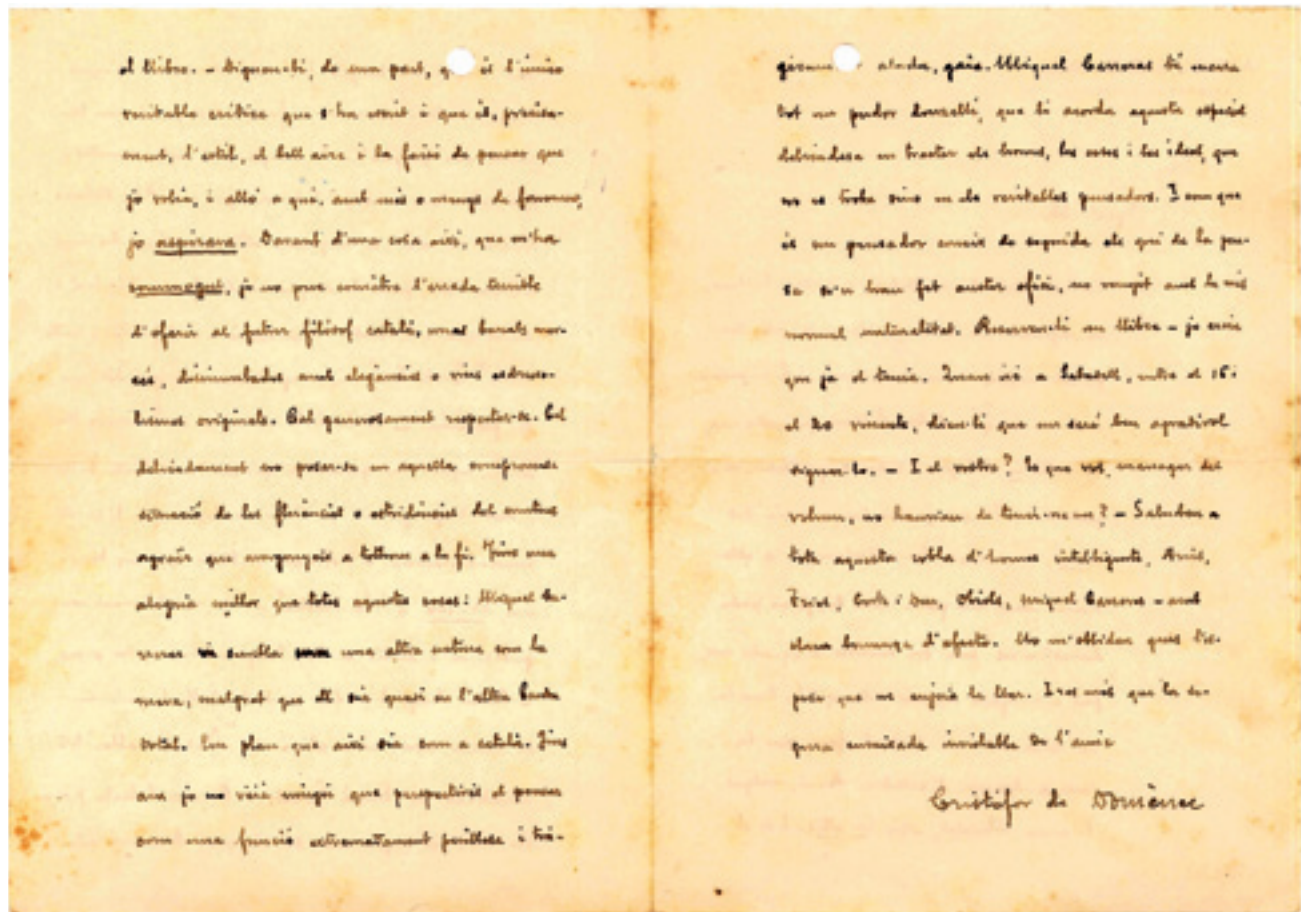 el llibre. – Digueu-li, de una part, que és l'única
veritable crítica que s'ha escrit i que és, precisa-
ment, l'estil, el bell aire i la faisó de pensar que
jo volia, i allò a què, amb més o menys de
jo aspirava. Davant d'una cosa així, que m'ha
commogut, jo no puc cometre l'errada terrible
d'oferir al futur filòsof català, unes banals mer-
cès, dissimulades amb elegàncies o vius
originals. Cal generosament respectar-se. Cal
delicadament no posar-se en aquella
situació de les o estridències del
agrair que a tothom a la fi. Tinc una
alegria millor que totes aquestes coses: Miquel Ca-
rreras sembla una altra natura com la
meva, malgrat que ell sia quasi en l'altra banda
total. Em plau que així sia com a català. Fins
ara jo no veia ningú que el pensar
com una funció extremadament perillosa i trà-
gicament alada, gaia. Miquel Carreras té encara
tot un pudor donzellí, que li acorda aquesta especial
delicadesa en tractar els homes, les coses i les idees, que
no es troba sinó en els veritables pensadors. I com que
és un pensador coneix de seguida els qui de la pen-
sa se'n han fet auster ofici, no romput amb la més
normal naturalitat. Reserveu-li un llibre – jo creia
que ja el tenia. Quan vé a Sabadell, entre el 16 i
el 20 vinents, dieu-li que em serà ben agradívol
veguen-lo. – I el vostre? Es que vós, manager del
volum, no hauríeu de tenir-ne un? – Saludeu a
tota aquesta colla d'homes intel·ligents, Arús,
Trias, Soler i , Obiols, Miquel Carreras – amb
homenatge d'afecte. No m'oblideu l'es-
posa que us enjoia la llar. I res més que la se-
gura encaixada inviolable de l'amic
Cristòfor de Domènec